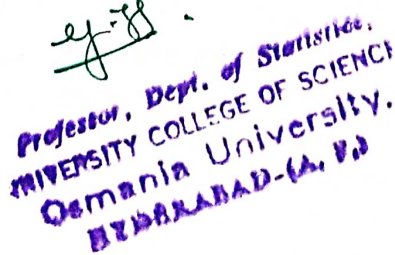 Professor, Dept. of Statistics,
UNIVERSITY COLLEGE OF SCIENCE
Osmania University.
HYDERABAD-(A. P.)